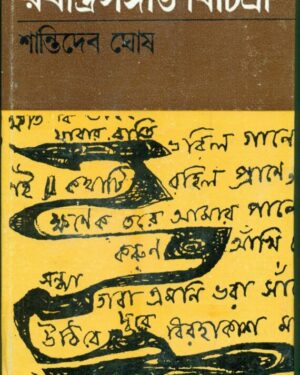 রবীন্দ্রসঙ্গীত বিচিত্রা
শান্তিদেব ঘোষ
যাবার রাতি
ভরিল গানে
কথাটি রহিল প্রাণে
ক্ষণেক তরে আমার পানে
করুণ আঁখি
সন্ধ্যা
তারা এমনি ভরা সাঁ
উঠিবে দূরে বিরহাকাশ মা